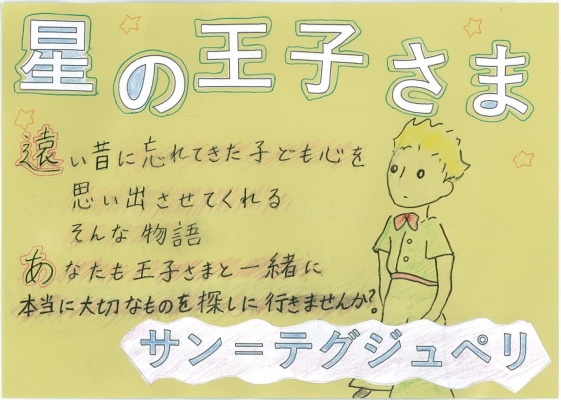 星の王子さま
遠い昔に忘れてきた子ども心を
思い出させてくれる
そんな物語
あなたも王子さまと一緒に
本当に大切なものを探しに行きませんか?
サン=テグジュペリ